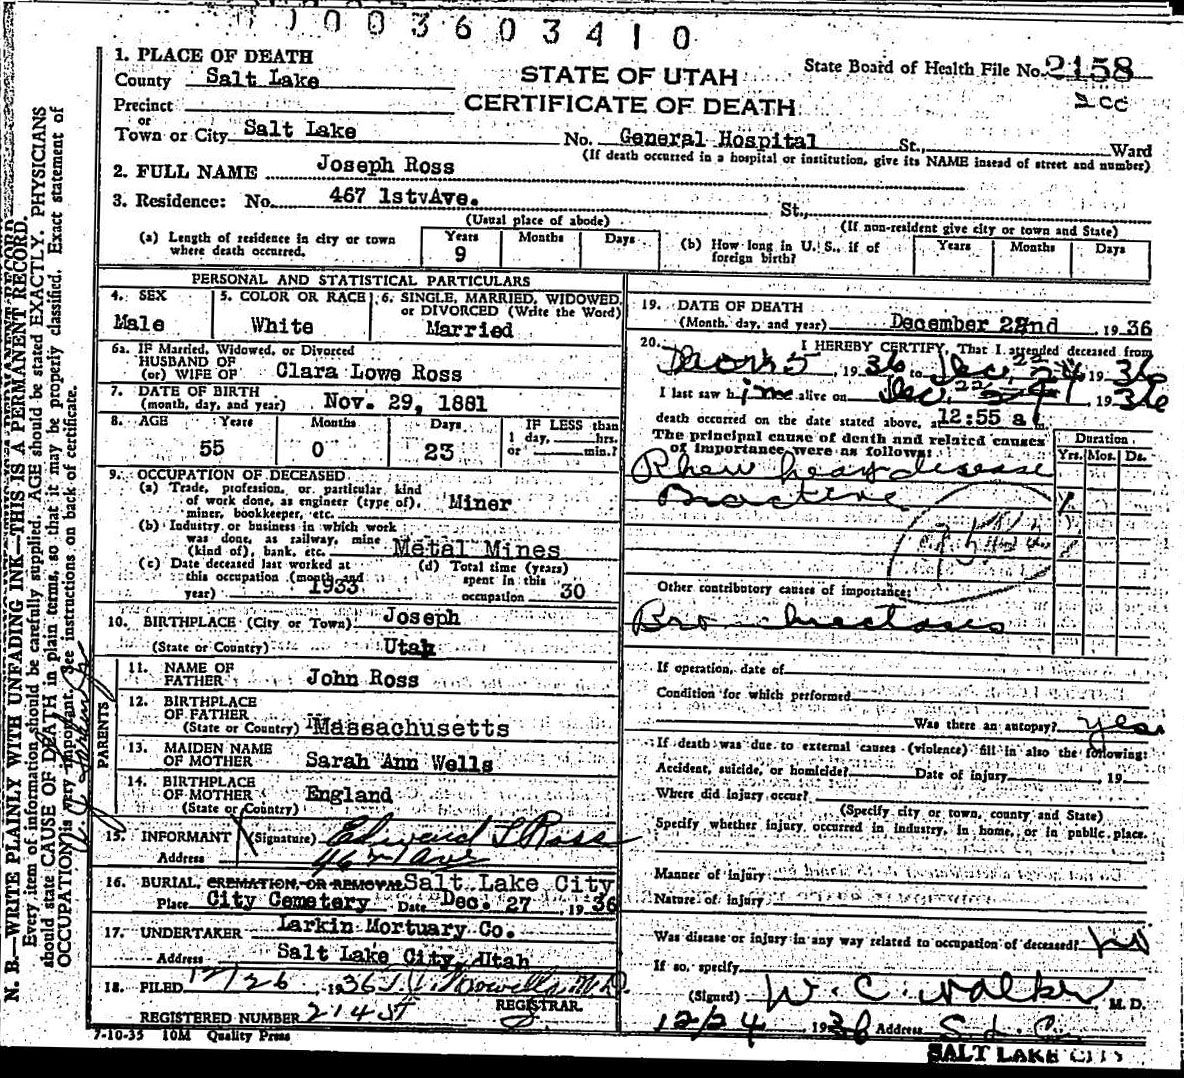 003603410
1. PLACE OF DEATH
County Salt Lake
STATE OF UTAH
State Board of Health File No. 2158
Precinct
CERTIFICATE OF DEATH
or
Town or City Salt Lake No. General Hospital St., Ward
(If death occurred in a hospital or institution, give its NAME instead of street and number)
2. FULL NAME Joseph Ross
3. Residence: No. 467 1stvAve. St.,
(Usual place of abode) (If non-resident give city or town and State)
(a) Length of residence in city or town where death occurred. Years 9 Months Days
(b) How long in U. S., if of foreign birth? Years Months Days
PERSONAL AND STATISTICAL PARTICULARS
4. SEX
Male
5. COLOR OR RACE
White
6. SINGLE, MARRIED, WIDOWED, or DIVORCED (Write the Word)
Married
6a. IF Married, Widowed, or Divorced
HUSBAND OF
(or) WIFE OF Clara Lowe Ross
7. DATE OF BIRTH
(month, day, and year) Nov. 29, 1881
8. AGE Years Months Days IF LESS than
55 0 23 1 day, hrs. or min.?
9. OCCUPATION OF DECEASED
(a) Trade, profession, or particular kind
of work done, as engineer (type of), Miner
miner, bookkeeper, etc.
(b) Industry or business in which work
was done, as railway, mine
(kind of), bank, etc. Metal Mines
(c) Date deceased last worked at
this occupation (month and
year) 1933
(d) Total time (years)
spent in this
occupation 30
10. BIRTHPLACE (City or Town) Joseph
(State or Country) Utah
PARENTS
11. NAME OF
FATHER John Ross
12. BIRTHPLACE
OF FATHER
(State or Country) Massachusetts
13. MAIDEN NAME
OF MOTHER Sarah Ann Wells
14. BIRTHPLACE
OF MOTHER England
(State or Country)
15. INFORMANT (Signature) Edward L Ross
Address
16. BURIAL, CREMATION, OR REMOVAL Salt Lake City
Place City Cemetery Date Dec. 27, 1936
17. UNDERTAKER Larkin Mortuary Co.
Address Salt Lake City, Utah
18. FILED 12/26, 1936
REGISTRAR.
REGISTERED NUMBER 214
7-10-35 10M Quality Press
19. DATE OF DEATH
(Month, day, and year) December 22nd, 1936
20. I HEREBY CERTIFY, That I attended deceased from
, 1936 to Dec. 22, 1936
I last saw him alive on Dec. 22, 1936
death occurred on the date stated above, at 12:55 a m.
The principal cause of death and related causes
of importance were as follows:
Duration
Yrs. Mos. Ds.
disease
Other contributory causes of importance:
If operation, date of
Condition for which performed
Was there an autopsy? yes
If death was due to external causes (violence) fill in also the following:
Accident, suicide, or homicide? Date of injury , 19
Where did injury occur?
(Specify city or town, county and State)
Specify whether injury occurred in industry, in home, or in public place.
Manner of injury
Nature of injury
Was disease or injury in any way related to occupation of deceased? No
If so, specify
(Signed) W. C. Walker M. D.
12/24, 1936 Address S. L. C.
SALT LAKE CITY
N. B.—WRITE PLAINLY WITH UNFADING INK—THIS IS A PERMANENT RECORD.
Every item of information should be carefully supplied. AGE should be stated EXACTLY. PHYSICIANS
should state CAUSE OF DEATH in plain terms, so that it may be properly classified. Exact statement of
OCCUPATION is very important. See instructions on back of certificate.